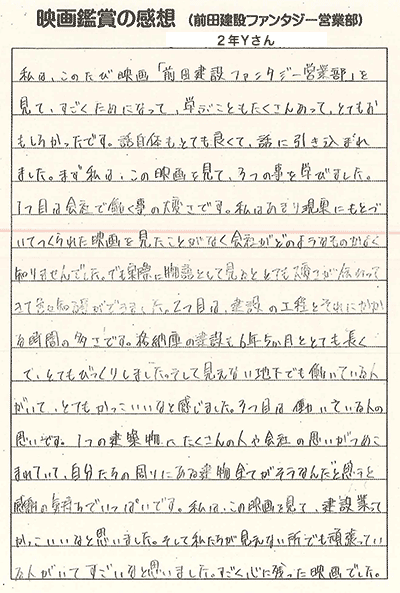 映画鑑賞の感想 (前田建設ファンタジー営業部)
2年Yさん
私は、このたび映画「前田建設ファンタジー営業部」を
見て、すごくためになって、学ぶこともたくさんあって、とてもお
もしろかったです。話自体もとても良くて、話に引き込まれ
ました。まず私は、この映画を見て、3つの事を学びました。
1つ目は会社で働く事の大変さです。私はあまり現実にもとづ
いてつくられた映画を見たことがなく会社がどのようなものかよく
知りませんでした。でも実際に物語として見るととても大変さが伝わって
きて
ができました。2つ目は、建設の工程とそれにかか
る時間の多さです。格納庫の建設も6年5か月ととても長く
て、とてもびっくりしました。そして見えない地下でも働いている人
がいて、とてもかっこいいなと感じました。3つ目は働いている人の
思いです。1つの建築物にたくさんの人や会社の思いがつめこ
まれていて、自分たちの周りにある建物全てがそうなんだと思うと
感謝の気持ちでいっぱいです。私は、この映画を見て、建設業って
かっこいいなと思いました。そして私たちが見えない所でも頑張ってい
る人がいてすごいなと思いました。すごく心に残った映画でした。